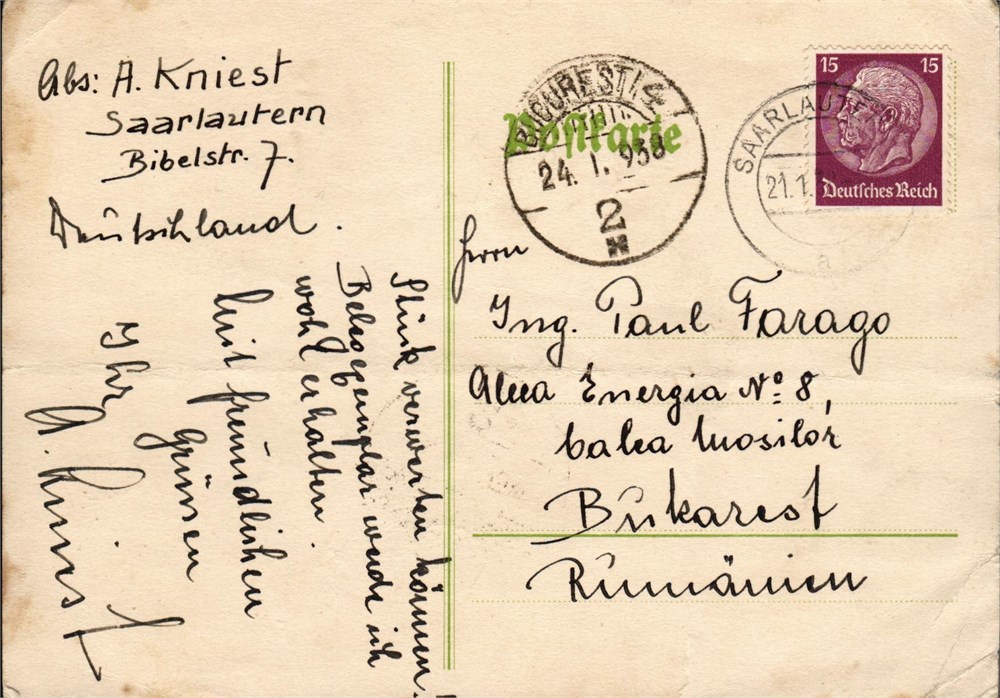 Abs: A. Kniest
Saarlautern
Bibelstr. 7.
Deutschland.
Stück verwerten können!
Belegexemplar werde ich
wohl erhalten.
Mit freundlichen
Grüssen
Ihr
A. Kniest
Postkarte
BUCURESTI. 4
24. 1. 938
2
SAARLAUTE
21.1.
a
15 15
Deutsches Reich
Herrn
Ing. Paul Farago
Aleea Energia Nº 8,
calea Mosilor
Bukarest
Rumänien